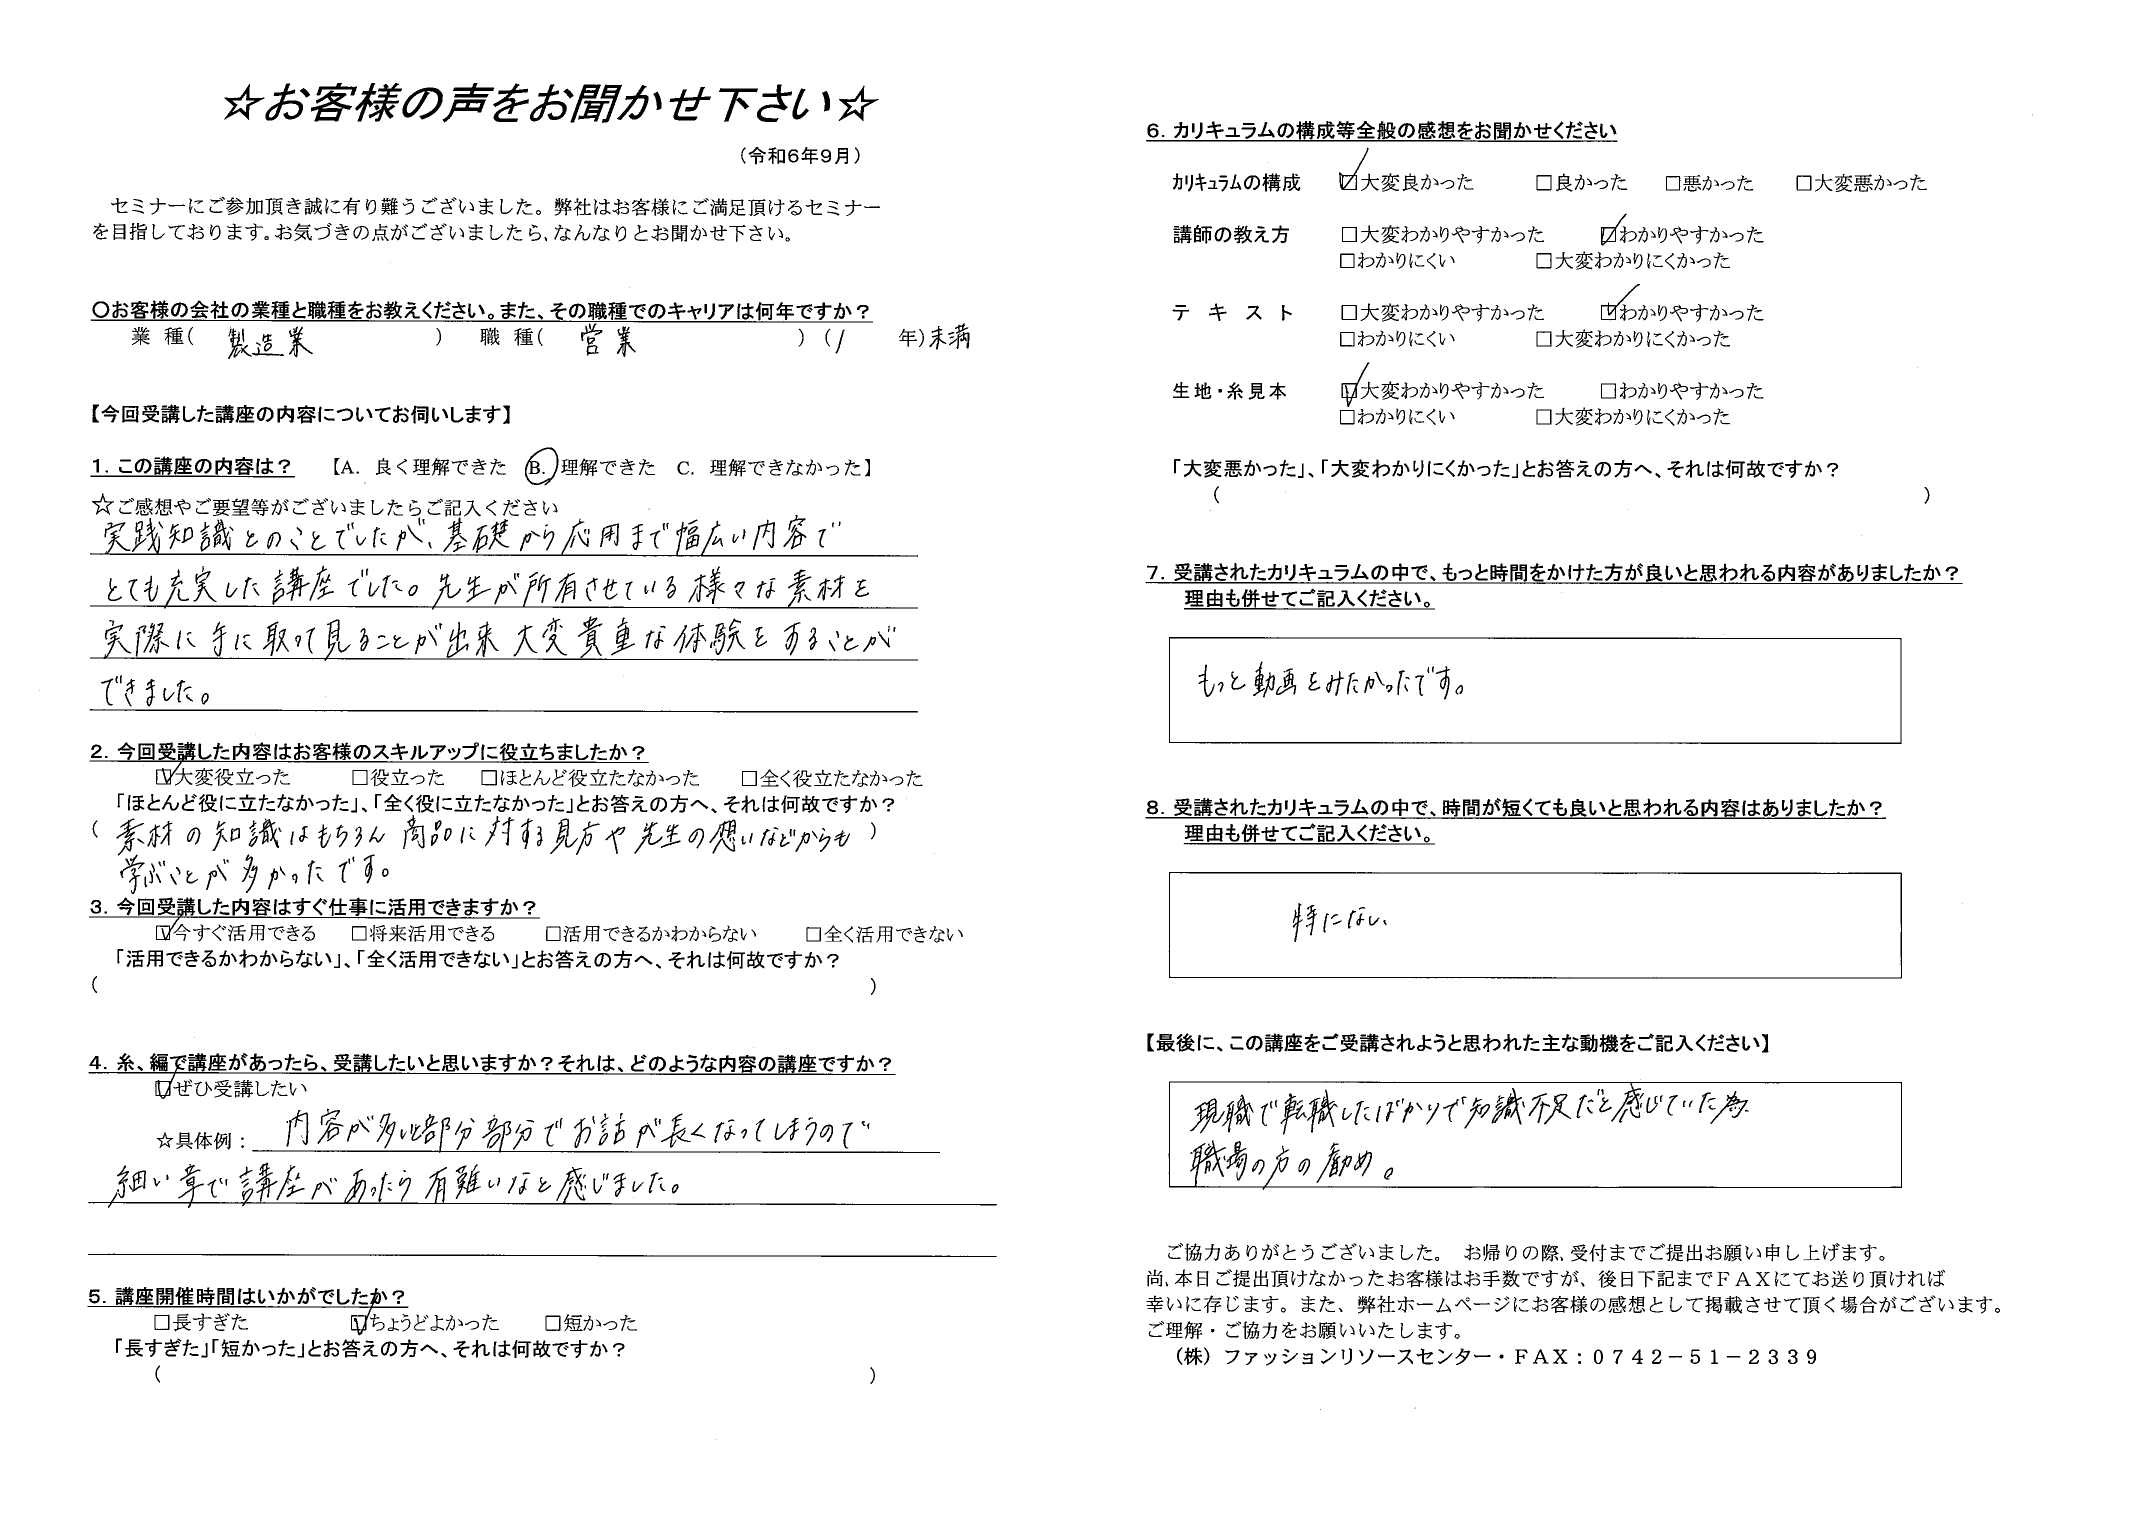 ☆お客様の声をお聞かせ下さい☆
（令和6年9月）
セミナーにご参加頂き誠に有り難うございました。弊社はお客様にご満足頂けるセミナー
を目指しております。お気づきの点がございましたら、なんなりとお聞かせ下さい。
〇お客様の会社の業種と職種をお教えください。また、その職種でのキャリアは何年ですか？
業 種( 製造業 ) 職 種( 営業 ) (1 年)未満
【今回受講した講座の内容についてお伺いします】
1. この講座の内容は？ 【A. 良く理解できた B. 理解できた C. 理解できなかった】
☆ご感想やご要望等がございましたらご記入ください
実践知識とのことでしたが、基礎から応用まで幅広い内容で
とても充実した講座でした。先生が所有させている様々な素材を
実際に手に取って見ることが出来 大変貴重な体験をすることが
できました。
2. 今回受講した内容はお客様のスキルアップに役立ちましたか？
☑大変役立った □役立った □ほとんど役立たなかった □全く役立たなかった
「ほとんど役に立たなかった」、「全く役に立たなかった」とお答えの方へ、それは何故ですか？
( 素材の知識はもちろん 商品に対する見方や先生の想いなどからも )
学ぶことが多かったです。
3. 今回受講した内容はすぐ仕事に活用できますか？
☑今すぐ活用できる □将来活用できる □活用できるかわからない □全く活用できない
「活用できるかわからない」、「全く活用できない」とお答えの方へ、それは何故ですか？
( )
4. 糸、編で講座があったら、受講したいと思いますか？それは、どのような内容の講座ですか？
☑ぜひ受講したい
☆具体例： 内容が多い部分部分でお話が長くなってしまうので
細い章で講座があったら有難いなと感じました。
5. 講座開催時間はいかがでしたか？
□長すぎた ☑ちょうどよかった □短かった
「長すぎた」「短かった」とお答えの方へ、それは何故ですか？
( )
6. カリキュラムの構成等全般の感想をお聞かせください
カリキュラムの構成 ☑大変良かった □良かった □悪かった □大変悪かった
講師の教え方 □大変わかりやすかった ☑わかりやすかった
□わかりにくい □大変わかりにくかった
テ キ ス ト □大変わかりやすかった ☑わかりやすかった
□わかりにくい □大変わかりにくかった
生地・糸見本 ☑大変わかりやすかった □わかりやすかった
□わかりにくい □大変わかりにくかった
「大変悪かった」、「大変わかりにくかった」とお答えの方へ、それは何故ですか？
( )
7. 受講されたカリキュラムの中で、もっと時間をかけた方が良いと思われる内容がありましたか？
理由も併せてご記入ください。
もっと動画をみたかったです。
8. 受講されたカリキュラムの中で、時間が短くても良いと思われる内容はありましたか？
理由も併せてご記入ください。
特にない
【最後に、この講座をご受講されようと思われた主な動機をご記入ください】
現職で転職したばかりで知識不足だと感じていた為。
職場の方の勧め。
ご協力ありがとうございました。 お帰りの際、受付までご提出お願い申し上げます。
尚、本日ご提出頂けなかったお客様はお手数ですが、後日下記までＦＡＸにてお送り頂ければ
幸いに存じます。また、弊社ホームページにお客様の感想として掲載させて頂く場合がございます。
ご理解・ご協力をお願いいたします。
（株）ファッションリソースセンター・ＦＡＸ：０７４２－５１－２３３９